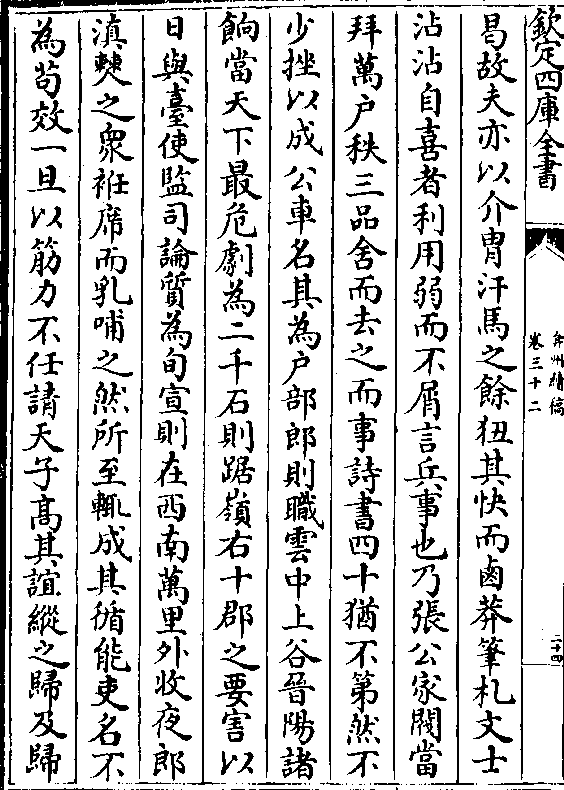 欽定四庫全書
弇州續稿
卷三十二
二十四
曷故夫亦以介胄汗馬之餘狃其快而鹵莽筆札文士
沾沾自喜者利用弱而不屑言兵事也乃張公家閥當
拜萬户秩三品舍而去之而事詩書四十猶不第然不
少挫以成公車名其為户部郎則職雲中上谷晉陽諸
餉當天下最危劇為二千石則踞嶺右十郡之要害以
日與臺使監司論質為旬宣則在西南萬里外收夜郎
滇僰之衆袵席而乳哺之然所至輒成其循能吏名不
為茍效一旦以筋力不任請天子高其誼縱之歸及歸